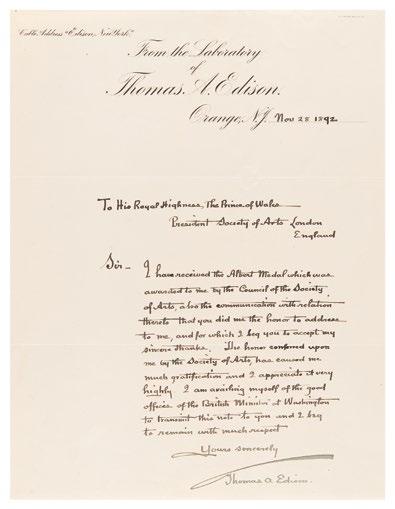 Cable Address "Edison, New York"
From the Laboratory
of
Thomas A. Edison.
Orange, N.J. Nov 28 1892
To His Royal Highness, The Prince of Wales
President Society of Arts London
England
Sir — I have received the Albert Medal which was
awarded to me by the Council of the Society
of Arts, also the communication with relation
thereto that you did me the honor to address
to me, and for which I beg you to accept my
sincere thanks. The honor conferred upon
me by the Society of Arts, has caused me
much gratification and I appreciate it very
highly I am availing myself of the good
offices of the British Minister at Washington
to transmit this note to you and I beg
to remain with much respect
Yours sincerely
Thomas A. Edison.